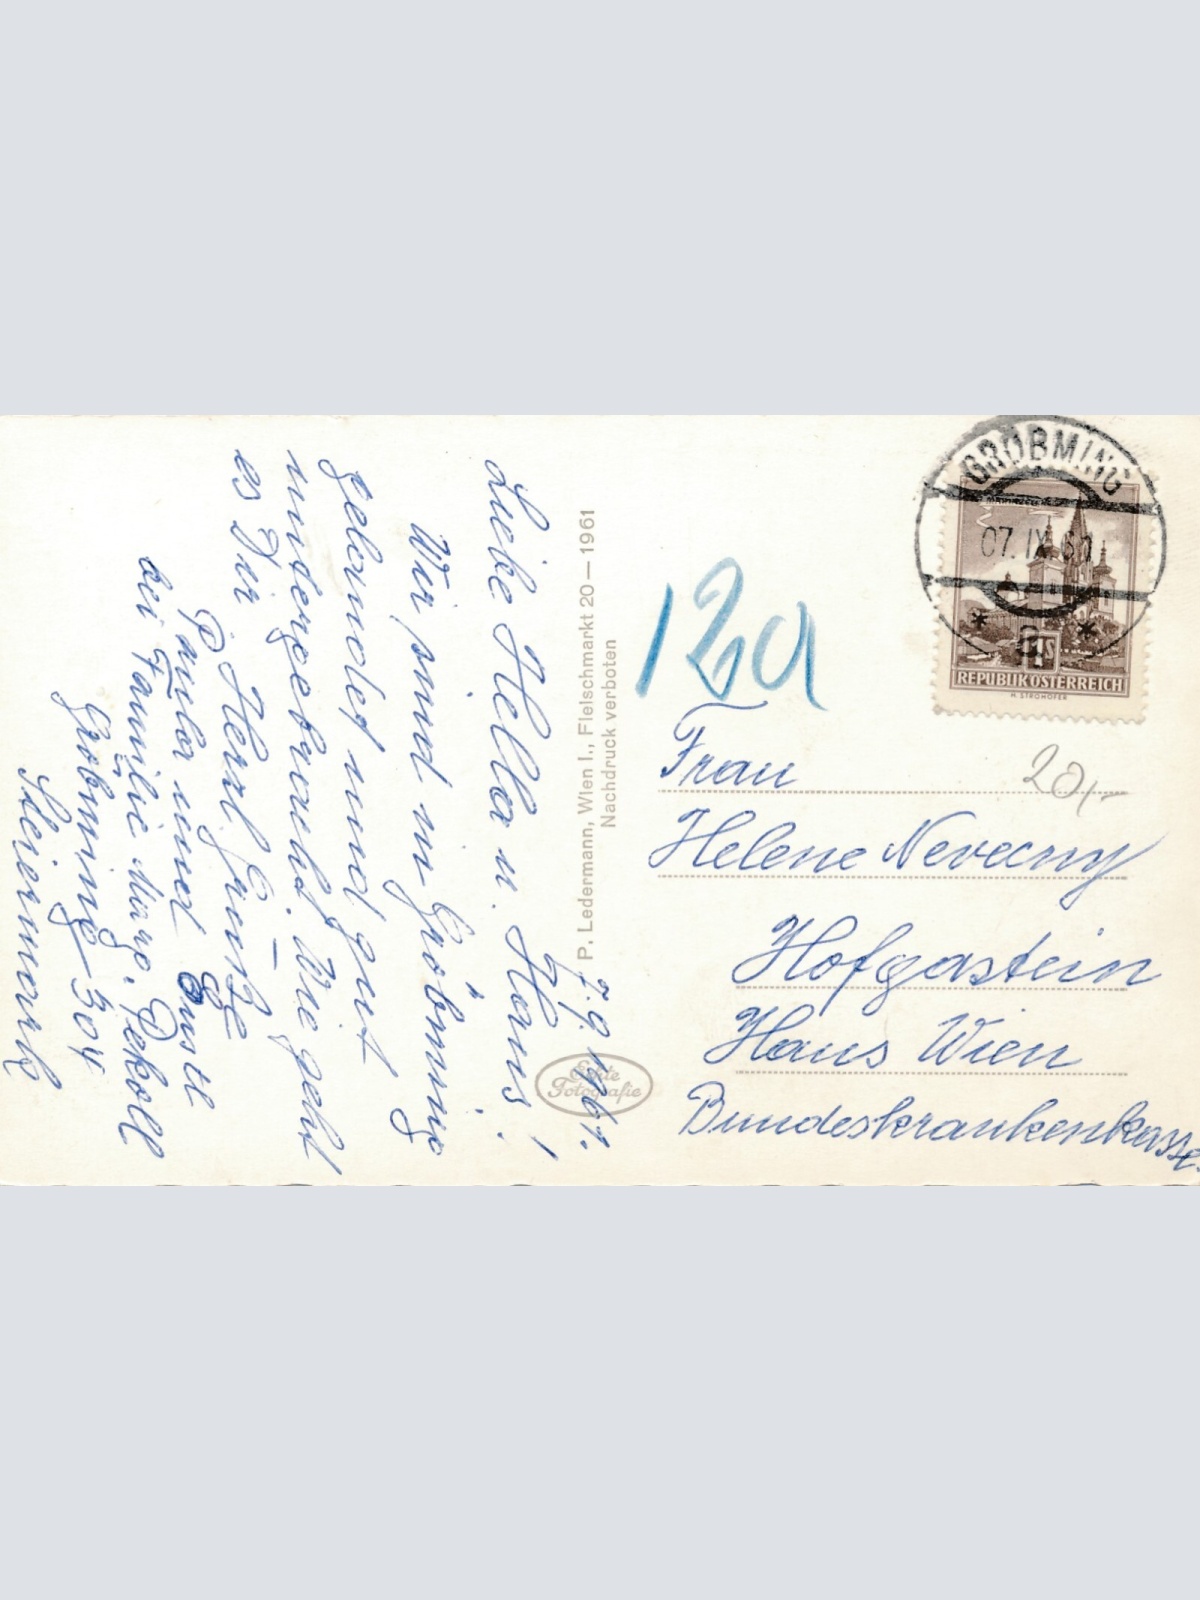 7.9.1961.
Liebe Hella u. Hans!
Wir sind in Gröbming
gelandet und gut
untergebracht. Wie geht
es Dir
Herzl. Grüße
Paula und
bei Familie Marg. Pekoll
Gröbming 304
Steiermark
P. Ledermann, Wien I., Fleischmarkt 20 – 1961
Nachdruck verboten
Echte
Fotografie
GRÖBMING
07. IX. 61
S
REPUBLIK ÖSTERREICH
H. STROHOFER
12a
20,-
Frau
Helene Nevecny
Hofgastein
Haus Wien
Bundeskrankenkasse.